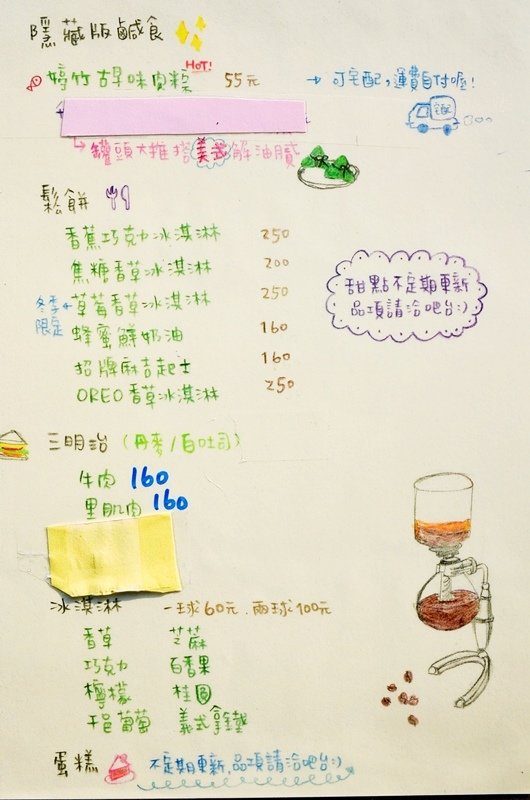 隱藏版鹹食
HOT!
婷竹古早味肉粽 55元 → 可宅配,運費自付喔!
宅配
罐頭大推搭美式解油膩
鬆餅
香蕉巧克力冰淇淋 250
焦糖香草冰淇淋 200
冬季限定 草莓香草冰淇淋 250
蜂蜜鮮奶油 160
招牌麻吉起士 160
OREO香草冰淇淋 250
甜點不定期更新
品項請洽吧台:)
三明治 (丹麥/白吐司)
牛肉 160
里肌肉 160
冰淇淋 一球60元.兩球100元
香草 芝麻
巧克力 百香果
檸檬 桂圓
干邑葡萄 義式拿鐵
蛋糕 不定期更新,品項請洽吧台:)